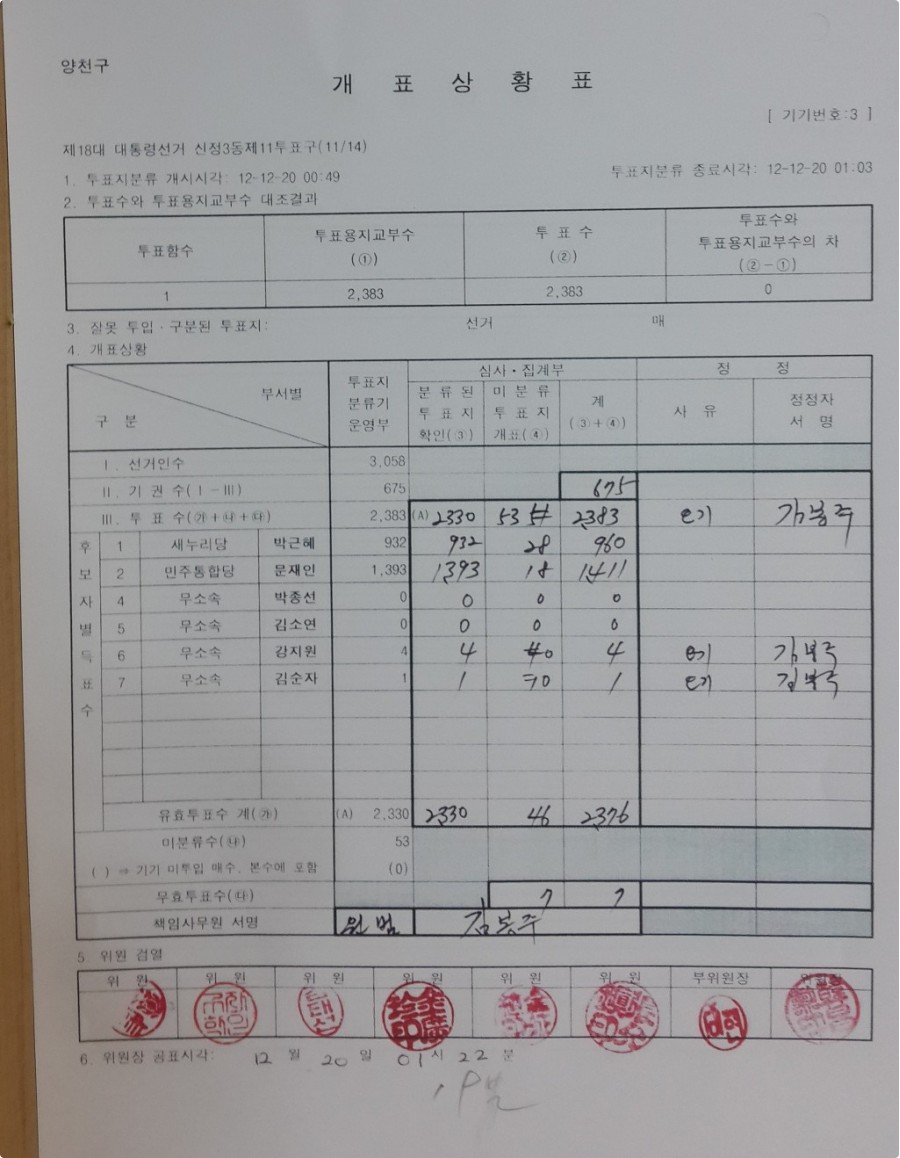 양천구
개 표 상 황 표
[ 기기번호:3 ]
제18대 대통령선거 신정3동제11투표구(11/14)
1. 투표지분류 개시시각: 12-12-20 00:49 투표지분류 종료시각: 12-12-20 01:03
2. 투표수와 투표용지교부수 대조결과
투표함수 투표용지교부수 (①) 투 표 수 (②) 투표수와 투표용지교부수의 차 (②-①)
1 2,383 2,383 0
3. 잘못 투입·구분된 투표지: 선거 매
4. 개표상황
구 분 부서별 투표지 분류기 운영부 심사·집계부 정 정
분 류 된 투 표 지 확인(③) 미 분 류 투 표 지 개표(④) 계 (③+④) 사 유 정정자 서 명
Ⅰ. 선거인수 3,058
Ⅱ. 기 권 수(Ⅰ-Ⅲ) 675 675
Ⅲ. 투 표 수(㉮+㉯+㉰) 2,383 (A) 2330 53 2383 오기 김봉주
후보자별 득표수
1 새누리당 박근혜 932 932 28 960
2 민주통합당 문재인 1,393 1393 18 1411
4 무소속 박종선 0 0 0 0
5 무소속 김소연 0 0 0 0
6 무소속 강지원 4 4 0 4 오기 김봉주
7 무소속 김순자 1 1 0 1 오기 김봉주
유효투표수 계(㉮) (A) 2,330 2330 46 2376
미분류수(㉯) 53
( ) ⇒ 기기 미투입 매수, 본수에 포함 (0)
무효투표수(㉰) 7 7
책임사무원 서명 김봉주
5. 위원 검열
위 원 위 원 위 원 위 원 위 원 위 원 부위원장 위원장
6. 위원장 공표시각: 12 월 20 일 01 시 22 분